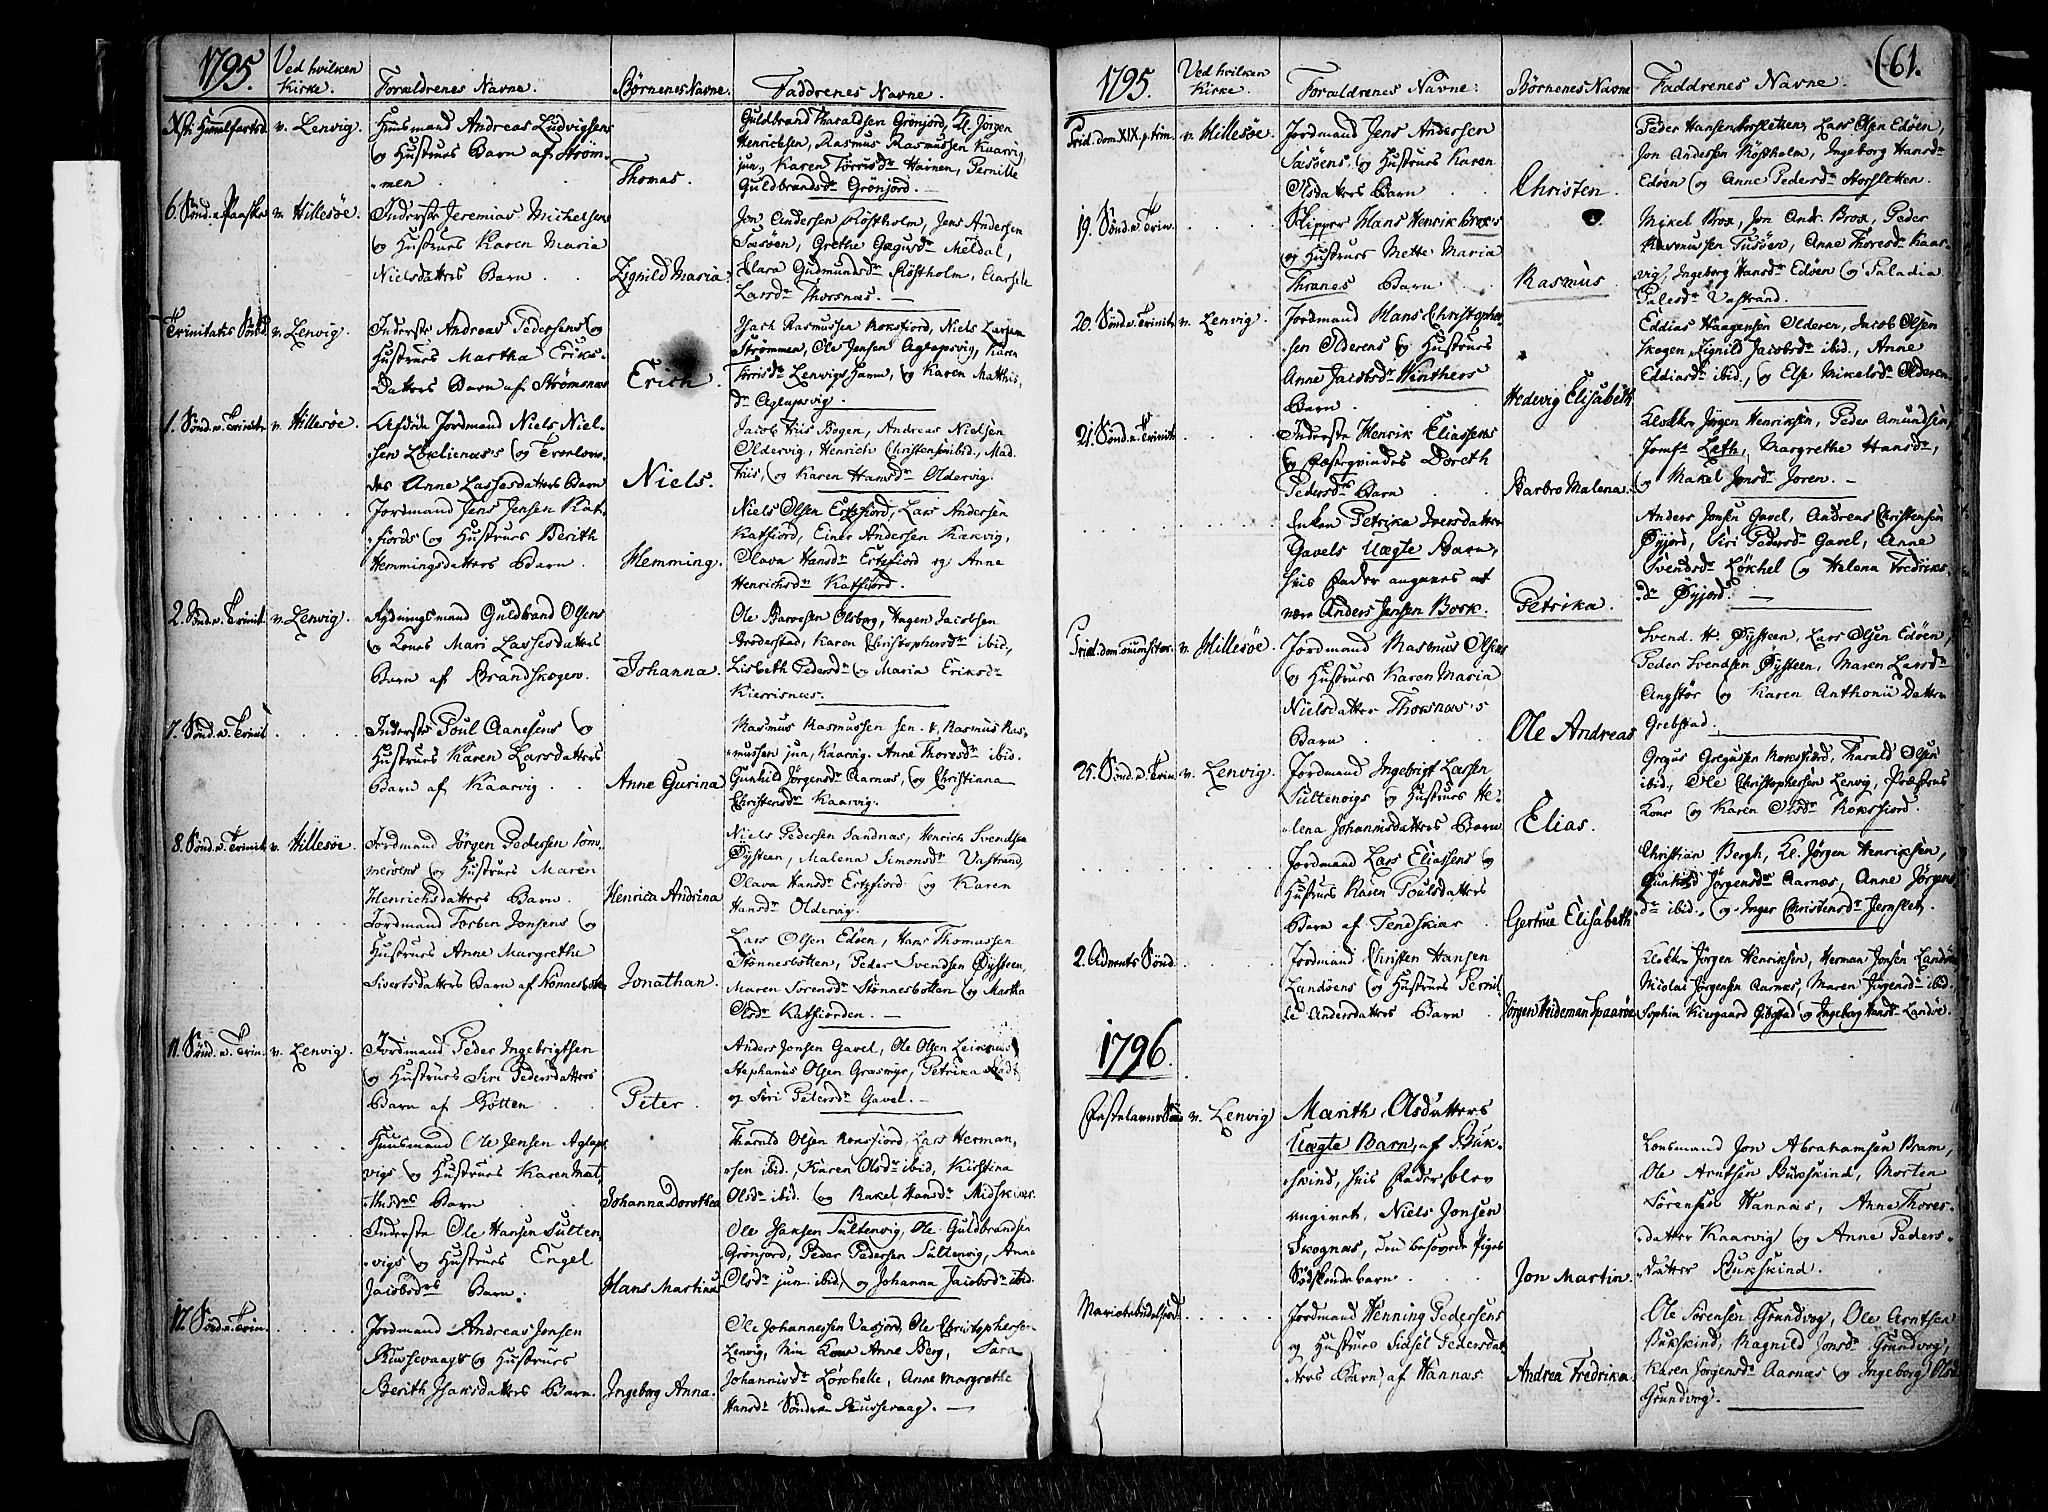 1795.
Ved hvilken
Kirke.
Forældrenes Navne.
Børnenes Navne.
Faddrenes Navne.
v. Lenvig
Huusmand Andreas Ludvigsens
og Hustrues Barn af Strøm-
men
Thomas.
Guldbrand Tharaldsen Grønjord, Kl. Jørgen
Henrichsen, Rasmus Rasmussen Kaarvig
jun., Karen Torrisdr Havnen, Pernille
Guldbrandsdr Grønjord.
6. Sønd. e. Paaske
v. Hillesøe.
Inderste Jeremias Michelsens
og Hustrues Karen Maria
Nielsdatters Barn
Zignild Maria
Jon Andersen Røstholm, Jens Andersen
Sæsøen, Grethe Gregusdr Meldal,
Klara Gudmundsdr Røstholm,
Larsdr Thorsnæs.
Trinitatis Sønd.
v. Lenvig.
Inderste Andreas Pedersens og
Hustrues Martha Eriks-
datters Barn af Strømsnæs
Erich.
Isach Rasmussen Roksfiord, Niels Larsen
Strømmen, Ole Jensen Aglapsvig, Karen
Torrisdr Lenvigs Havn, og Karen Matthis-
dr Aglapsvig.
1. Sønd. e. Trinit.
v. Hillesøe.
Afdøde Jordmand Niels Niel-
sen Løklienæs's og Trolov-
des Anne Lassesdatters Barn
Niels.
Jacob Friis Bogen, Andreas Nielsen
Oldervig, Henrich Christensen ibid., Mad.
Friis, og Karen Hansdr Oldervig.
Jordmand Jens Jensen Kat-
fiords og Hustrues Berith
Hemmingsdatters Barn.
Hemming.
Niels Olsen Ertzfiord, Lars Andersen
Katfiord, Einer Andersen Trækvig,
Olava Hansdr Ertzfiord og Anne
Henrichsdr Katfiord.
2. Sønd. e. Trinit.
v. Lenvig.
Rydningsmand Guldbrand Olsens
og Kones Mari Lassesdatters
Barn af Brandskogen.
Johanna.
Ole Olsborg, Hagen Jacobsen
Karen Christophersdr ibid.,
Lisbeth Pedersdr og Maria Eriksdr
Kierrisnæs.
7. Sønd. e. Trinit
Inderste Poul Aanesens og
Hustrues Karen Larsdatters
Barn af Kaarvig.
Anne Gurina
Rasmus Rasmussen sen. & Rasmus Ras-
mussen jun, Kaarvig. Anne Thoresdr ibid.
Gunhild Jørgensdr Aarnæs, og Christiana
Christensdr Kaarvig.
8. Sønd. e. Trinit.
v. Hillesøe.
Jordmand Jørgen Pedersen Som-
merøens og Hustrues Maren
Henrichsdatters Barn.
Henrica Andrina
Niels Pedersen Sandnæs, Henrich Svendsen
Øysteen, Malena Simonsdr Vastrand,
Olava Hansdr Ertzfiord og Karen
Hansdr Oldervig.
Jordmand Torben Jonsens og
Hustrues Anne Margrethe
Sivertsdatters Barn af Stønnesbotn
Jonathan.
Lars Olsen Edøen, Hans Thomassen
Stønnesbotten, Peder Svendsen Øysteen,
Maren Sørensdr Stønnesbotten og Martha
Olsdr Katfiorden.
11. Sønd. e. Trin.
v. Lenvig.
Jordmand Peder Ingebrigtsen
og Hustrues Siri Pedersdatters
Barn af Kotten
Peter.
Anders Jonsen Gavel, Ole Olsen Leiknæs
Stephanus Olsen Grasmyr, Petrika
og Siri Petersdr Gavel.
Huusmand Ole Jensen Aglaps-
vigs og Hustrues Karen Mat-
thisdrs Barn
Johanna Dorothea
Tharald Olsen Roksfiord, Lars Herman-
sen ibid., Karen Olsdr ibid, Kirstina
Olsdr ibid. og Rakel Hansdr Midskiær.
Inderste Ole Hansen Sulten-
vigs og Hustrues Engel
Jacobsdrs Barn.
Hans Martinus
Ole Jansen Sultenvig, Ole Guldbrandsen
Grønjord, Peder Pedersen Sultenvig, Anne
Olsdr jun ibid, og Johanna Jacobsdr ibid.
12. Sønd. e. Trin.
Jordmand Andreas Jonsen
Russevaags og Hustrues
Berith Isaksdatters Barn.
Ingeborg Anna.
Ole Johannessen Vasjord, Ole Christophersen
Lenvig, Min Kone Anne Berg, Sara
Johannisdr Løkhelle, Anne Margrethe
Hansdr Søndre Russevaag.
1795.
Ved hvilken
Kirke.
Forældrenes Navne.
Børnenes Navne
Faddrenes Navne.
(61.
Prid. dom. XIX. p. trin.
v. Hillesøe.
Jordmand Jens Andersen
Sæsøens, og Hustrues Karen
Olsdatters Barn
Christen.
Peder Hansen Horsletten, Lars Olsen Edøen,
Jon Andersen Røstholm, Ingeborg Hansdr
Edøen og Anne Pedersdr Horsletten.
19. Sønd. e. Trin.
Skipper Hans Henrik Brox's
og Hustrues Mette Maria
Thranes Barn
Rasmus
Mikel Brox, Jon Andr. Brox, Peder
Rasmussen Tusøen, Anne Thoresdr Kaar-
vig, Ingeborg Hansdr Edøen og Paladia
Palesdr Vastrand.
20. Sønd. e. Trinit.
v. Lenvig.
Jordmand Hans Christopher-
sen Olderens og Hustrues
Anne Jacobsdr Winthers
Barn.
Hedevig Elisabeth
Eddias Haagensen Olderen, Jacob Olsen
Skogen, Zignild Jacobsdr ibid., Anne
Eddiasdr ibid., og Else Mikelsdr Olderen.
21. Sønd. e. Trinit.
Inderste Henrik Eliassens
og Fæstegvindes Doreth
Pedersdrs Barn
Barbro Malena.
Klokker Jørgen Henriksen, Peder Amundsen,
Jomfr Leth, Margrethe Hansdr,
og Makel Jonsdr Joren.
Enken Petrika Iversdatter
Gavels Uægte Barn,
hvis Fader angaves at
være Anders Jensen Bork.
Petrika.
Anders Jonsen Gavel, Andreas Christensen
Øyjord, Siri Pedersdr Gavel, Anne
Svendsdr Løkhel og Helena Fredriks-
dr Øyjord.
v. Hillesøe.
Jordmand Rasmus Olsens
og Hustrues Karen Maria
Nielsdatter Thorsnæs's
Barn
Ole Andreas
Svend H. Øysteen, Lars Olsen Edøen,
Peder Svendsen Øysteen, Maren Larsdr
Angstør og Karen Anthonii Datter
Grebstad.
25. Sønd. e. Trin.
v. Lenvig.
Jordmand Ingebrigt Larsen
Sultenvigs og Hustrues He-
lena Johannisdatters Barn
Elias.
Gregus Gregussen Roksfiord, Tharald Olsen
ibid., Ole Christophersen Lenvig, Præstens
Kone og Karen Olsdr Roksfiord.
Jordmand Lars Eliassens og
Hustrues Karen Poulsdatters
Barn af Tendskiær
Gertrue Elisabeth
Christian Bergh, Kl. Jørgen Henriksen,
Gunhild Jørgensdr Aarnæs, Anne Jørgens
dr ibid., og Inger Christensdr Jernslet.
2. Advents Sønd.
Jordmand Christen Hansen
Landøens og Hustrues Pernil-
le Andersdatters Barn
Jørgen Heideman Spaarøe
Klokker Jørgen Henriksen, Herman Jonsen Landøe
Nicolai Jørgensen Aarnæs, Maren Jørgensdr ibid.
Sophia Kiergaard Gibostad og Ingeborg Hansdr Landøe.
1796.
Fastelavns Søn.
v. Lenvig
Marith Olsdatters
Uægte Barn, af Buk-
skind, hvis Fader blev
angivet, Niels Jonsen
Skognæs, den besovede Piges
Sødskendebarn
Jon Martin.
Lensmand Jon Abrahamsen Bram,
Ole Arntsen Bukskind, Morten
Sørensen Hannæs, Anne Thores-
datter Kaarvig og Anne Peders-
datter Bukskind.
Mariæ bebudelses d.
Jordmand Henning Pedersens
og Hustrues Sidsel Pedersdat-
ters Barn, af Hannæs
Andrea Fredrika.
Ole Sørensen Grundvog, Ole Arntsen
Bukskind, Magnild Jonsdr Grundvog,
Karen Jørgensdr Aarnæs og Ingeborg Olsd
Grundvog.